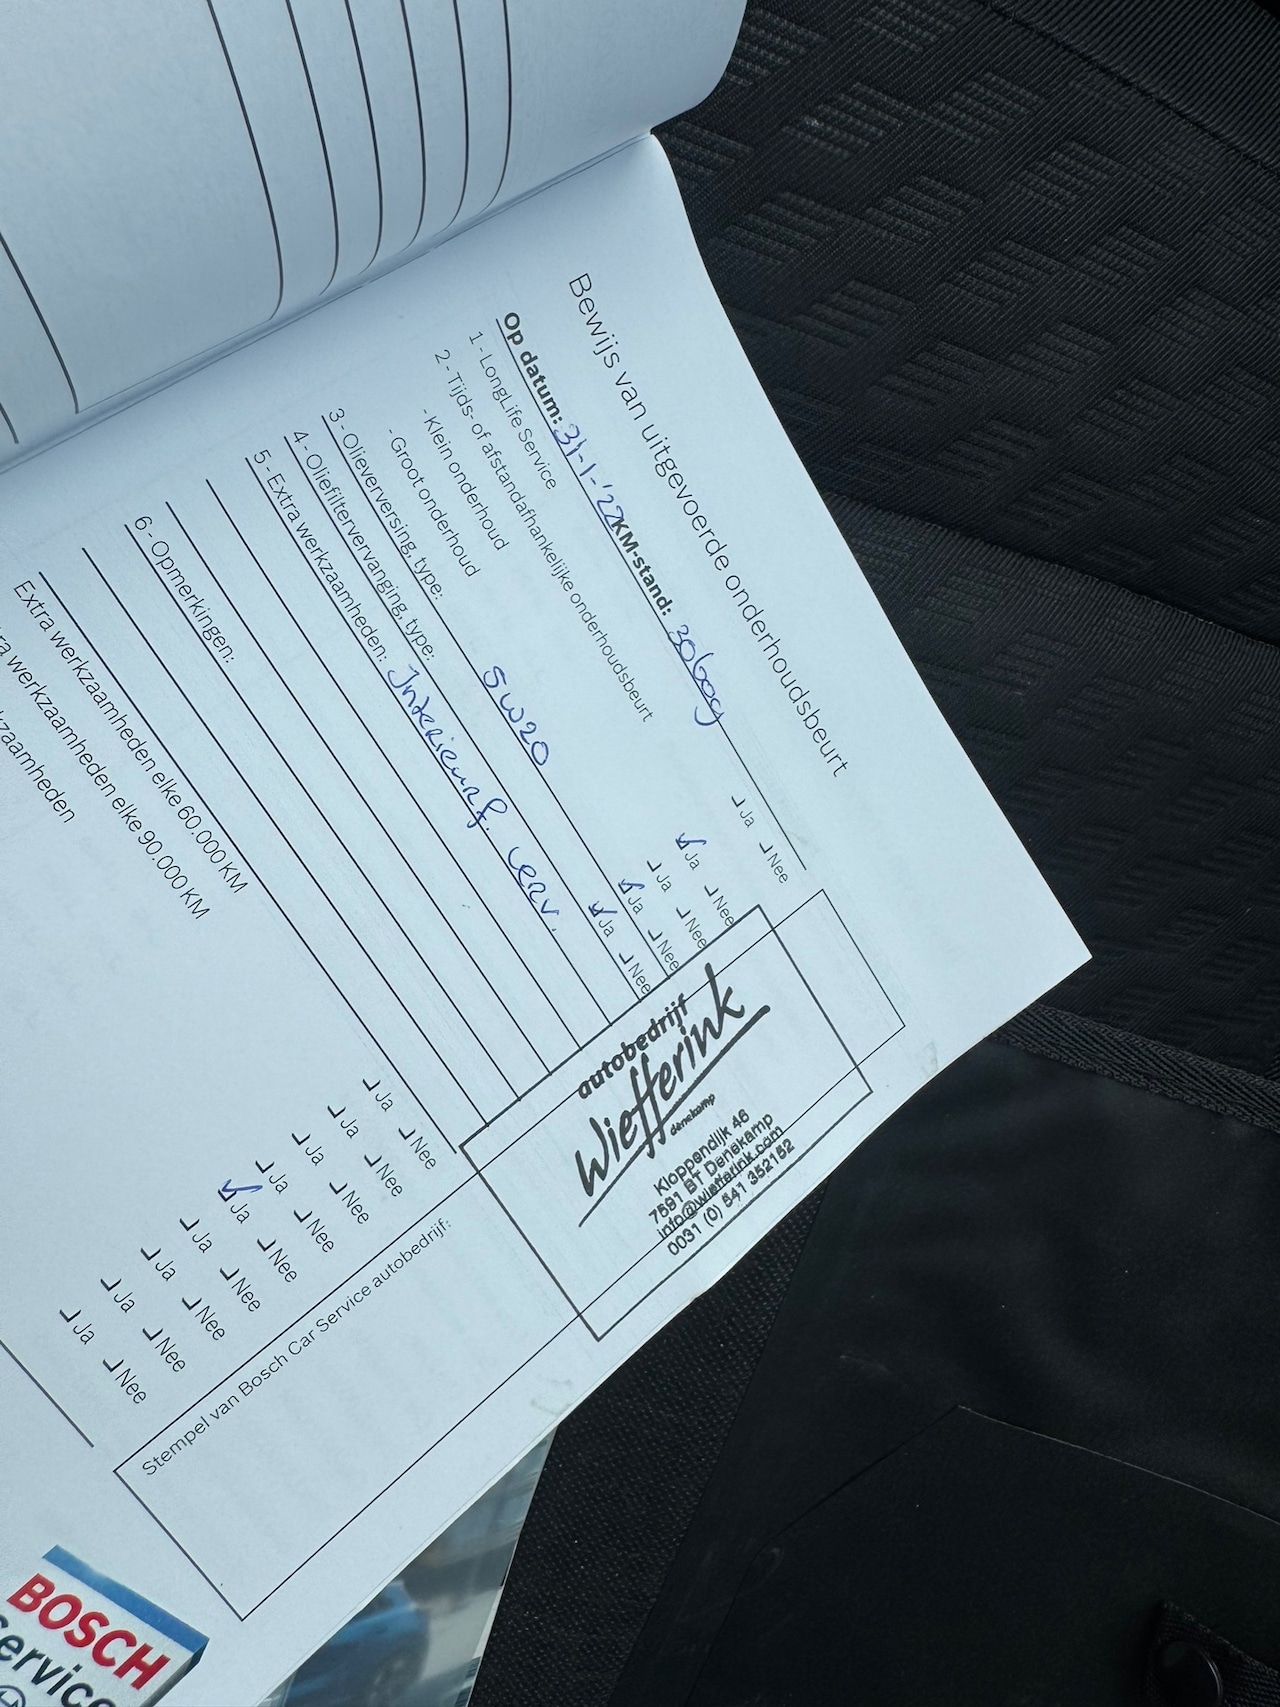 Bewijs van uitgevoerde onderhoudsbeurt
Op datum: 31-1-'22 KM-stand: 30609
1 - LongLife Service Ja Nee
2 - Tijds- of afstandafhankelijke onderhoudsbeurt Ja Nee
- Klein onderhoud Ja Nee
- Groot onderhoud Ja Nee
3 - Olieverversing, type: 5W20 Ja Nee
4 - Oliefiltervervanging, type:
5 - Extra werkzaamheden: Interieurf. verv.
6 - Opmerkingen:
Extra werkzaamheden elke 60.000 KM Ja Nee
werkzaamheden elke 90.000 KM Ja Nee
Ja Nee
Ja Nee
Ja Nee
Ja Nee
Ja Nee
Ja Nee
Ja Nee
Stempel van Bosch Car Service autobedrijf:
autobedrijf
Wiefferink
denekamp
Kloppendijk 46
7591 BT Denekamp
info@wiefferink.com
0031 (0) 541 352152
BOSCH